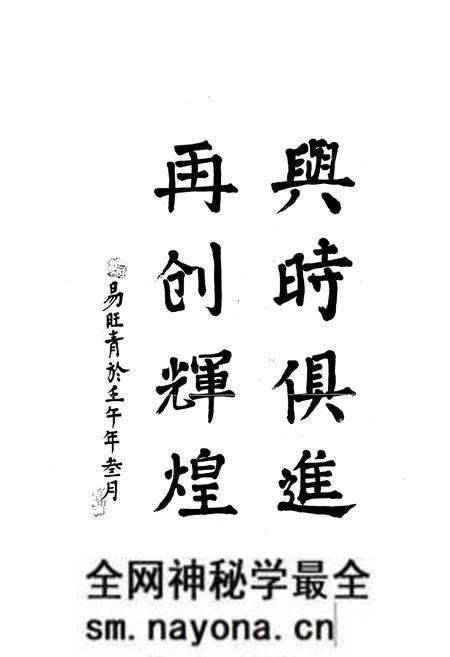 與時俱進
再创輝煌
易旺青於壬午年叁月
全网神秘学最全
sm.nayona.cn